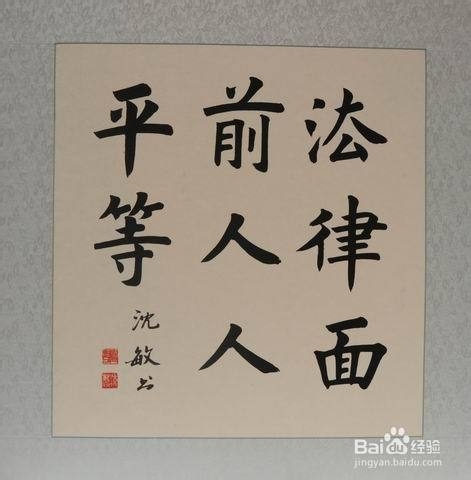 法律面
前人人
平等
沈敏书
Baidu经验
jingyan.baidu.com